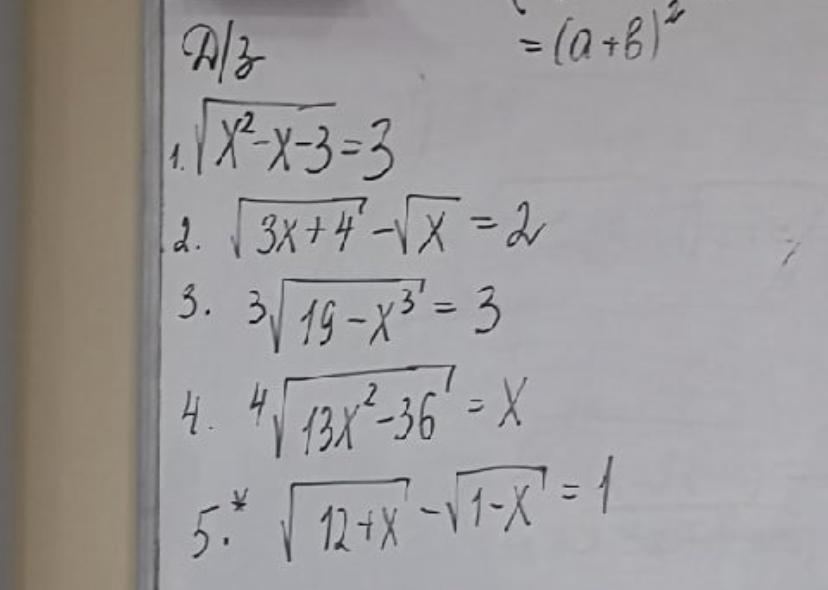 = (a+b)²
Д/з
1. √(x²-x-3) = 3
2. √(3x+4) - √x = 2
3. ³√(19-x³) = 3
4. ⁴√(13x²-36) = x
5.* √(12+x) - √(1-x) = 1